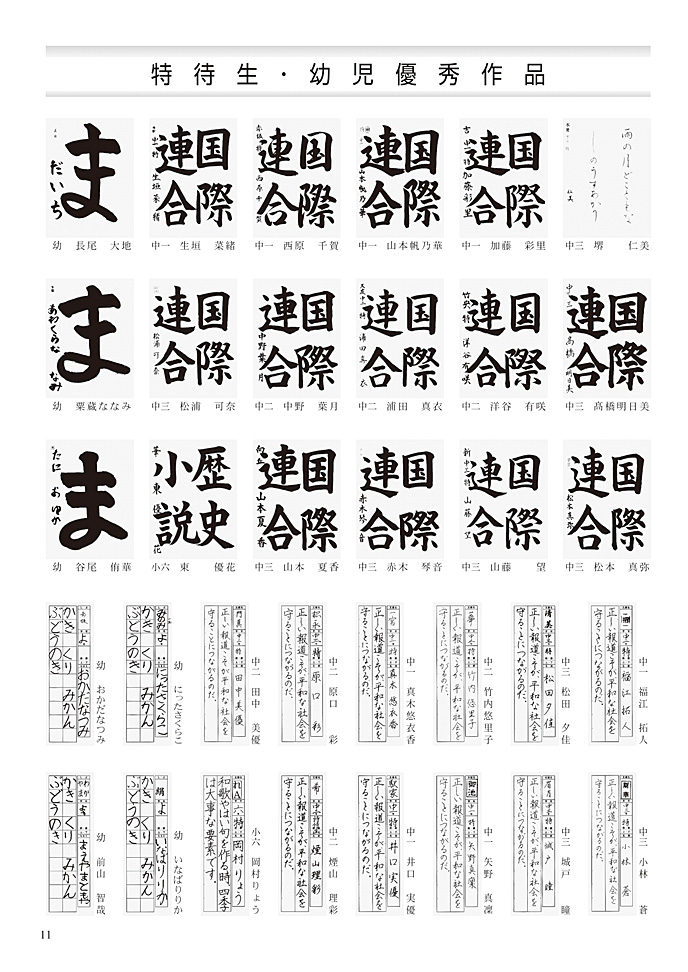 特待生・幼児優秀作品
ま
だいち
幼 長尾 大地
国際
連合
中一 生垣 菜緒
国際
連合
中一 西原 千賀
国際
連合
山本帆乃華
中一 山本帆乃華
国際
連合
加藤彩里
中一 加藤 彩里
雨の月どこともな
しのうすあかり
仁美
中三 堺 仁美
ま
あわくらななみ
幼 粟蔵ななみ
国際
連合
松浦可奈
中三 松浦 可奈
国際
連合
中野葉月
中二 中野 葉月
国際
連合
浦田真衣
中二 浦田 真衣
国際
連合
洋谷有咲
中二 洋谷 有咲
国際
連合
中三 高橋明日美
中三 髙橋明日美
ま
たにおゆか
幼 谷尾 侑華
歴史
小説
東優花
小六 東 優花
国際
連合
山本夏香
中三 山本 夏香
国際
連合
赤木琴音
中三 赤木 琴音
国際
連合
新中三特 山藤望
中三 山藤 望
国際
連合
松本真弥
中三 松本 真弥
中一 福江 拓人
中一特 福江拓人
正しい報道こそが平和な社会を
守ることにつながるのだ。
中三 松田 夕佳
中三特 松田夕佳
正しい報道こそが平和な社会を
守ることにつながるのだ。
中二 竹内悠里子
中二特 竹内悠里子
正しい報道こそが平和な社会を
守ることにつながるのだ。
中一 真木悠衣香
中一特 真木悠衣香
正しい報道こそが平和な社会を
守ることにつながるのだ。
中二 原口 彩
中二特 原口彩
正しい報道こそが平和な社会を
守ることにつながるのだ。
中二 田中 美優
中二特 田中美優
正しい報道こそが平和な社会を
守ることにつながるのだ。
幼 にったさくらこ
にったさくらこ
かき くり みかん
ぶどうのき
幼 おかだなつみ
おかだなつみ
かき くり みかん
ぶどうのき
中三 小林 蒼
小林蒼
正しい報道こそが平和な社会を
守ることにつながるのだ。
中三 城戸 瞳
城戸瞳
正しい報道こそが平和な社会を
守ることにつながるのだ。
中一 矢野 真凜
正しい報道こそが平和な社会を
守ることにつながるのだ。
中一 井口 実優
中一特 井口実優
正しい報道こそが平和な社会を
守ることにつながるのだ。
中二 煙山 理彩
煙山理彩
正しい報道こそが平和な社会を
守ることにつながるのだ。
小六 岡村りょう
六特 岡村りょう
和歌やはい句を作る時、四季子
は大事な要素です。
幼 いなばりりか
いなばりりか
かき くり みかん
ぶどうのき
幼 前山 智哉
まえやまともや
かき くり みかん
ぶどうのき
11